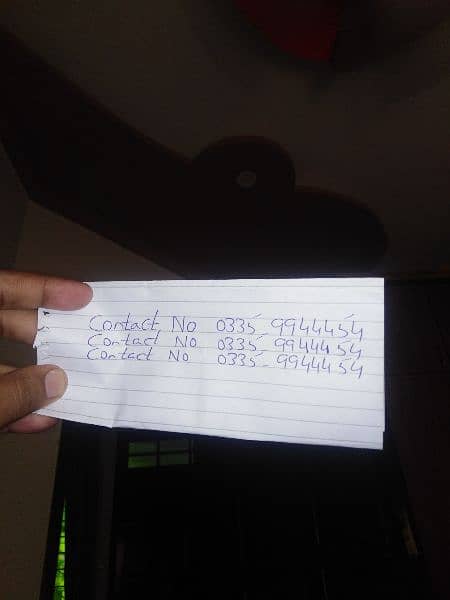 Contact No 0335-9944454
Contact No 0335-9944454
Contact No 0335-9944454